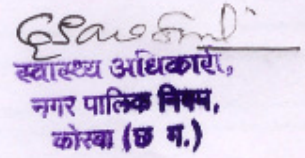 स्वास्थ्य अधिकारी,
नगर पालिक निगम,
कोरबा (छ ग.)